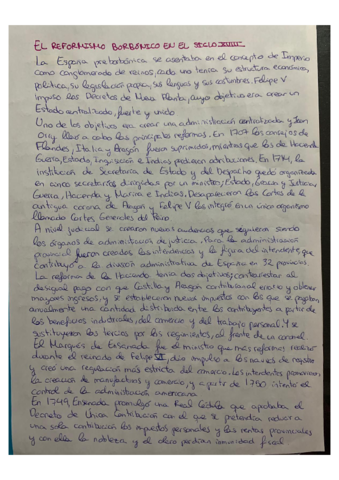 EL REFORMISMO BORBÓNICO EN EL SIGLO XVIII
La España preborbónica se asentaba en el concepto de Imperio
como conglomerado de reinos, cada uno tenía su estructura económica,
política, su legislación propia, sus lenguas y sus costumbres. Felipe V
impuso los Decretos de Nueva Planta, cuyo objetivo era crear un
Estado centralizado, fuerte y unido
Uno de los objetivos era crear una administración centralizada y Jean
Orry llevó a cabo las principales reformas. En 1707 los consejos de
Flandes, Italia y Aragón fueron suprimidos, mientras que los de Hacienda
Guerra, Estado, Inquisición e Indias perdieron atribuciones. En 1714, la
institución de Secretaría de Estado y del Despacho quedó organizada
en cinco secretarías dirigidas por un ministro; Estado, Gracia y Justicia
Guerra, Hacienda y Marina e Indias. Desaparecieron las Cortes de la
antigua corona de Aragón y Felipe V las integró en un único organismo
llamado Cortes Generales del Reino
A nivel judicial se crearon nuevas audiencias que siguieron siendo
los órganos de administración de justicia. Para la administración
provincial fueron creadas las intendencias y la figura del intendente que
contribuyó a la división administrativa de España en 32 provincias
La reforma de la Hacienda tenía dos objetivos; contrarrestar el
desigual pago con que Castilla y Aragón contribuían al erario y obtener
mayores ingresos, y se establecieron nuevos impuestos con los que se pagaban
anualmente una cantidad distribuida entre los contribuyentes a partir de
los beneficios industriales, del comercio y del trabajo personal. Y se
sustituyeron los tercios por los regimientos, al frente de un coronel
El Marqués de Ensenada fue el ministro que más reformas realizó
durante el reinado de Felipe VI, dio impulso a los navíos de registro
y creó una regulación más estricta del comercio. Los intendentes promovieron
la creación de manufacturas y comercio, y a partir de 1750 intentó el
control de la administración americana
En 1749, Ensenada promulgó una Real Cédula que aprobaba el
Decreto de Única Contribución con el que se pretendía reducir a
una sola contribución los impuestos personales y las rentas provinciales
y con ella la nobleza y el clero perdían inmunidad fiscal